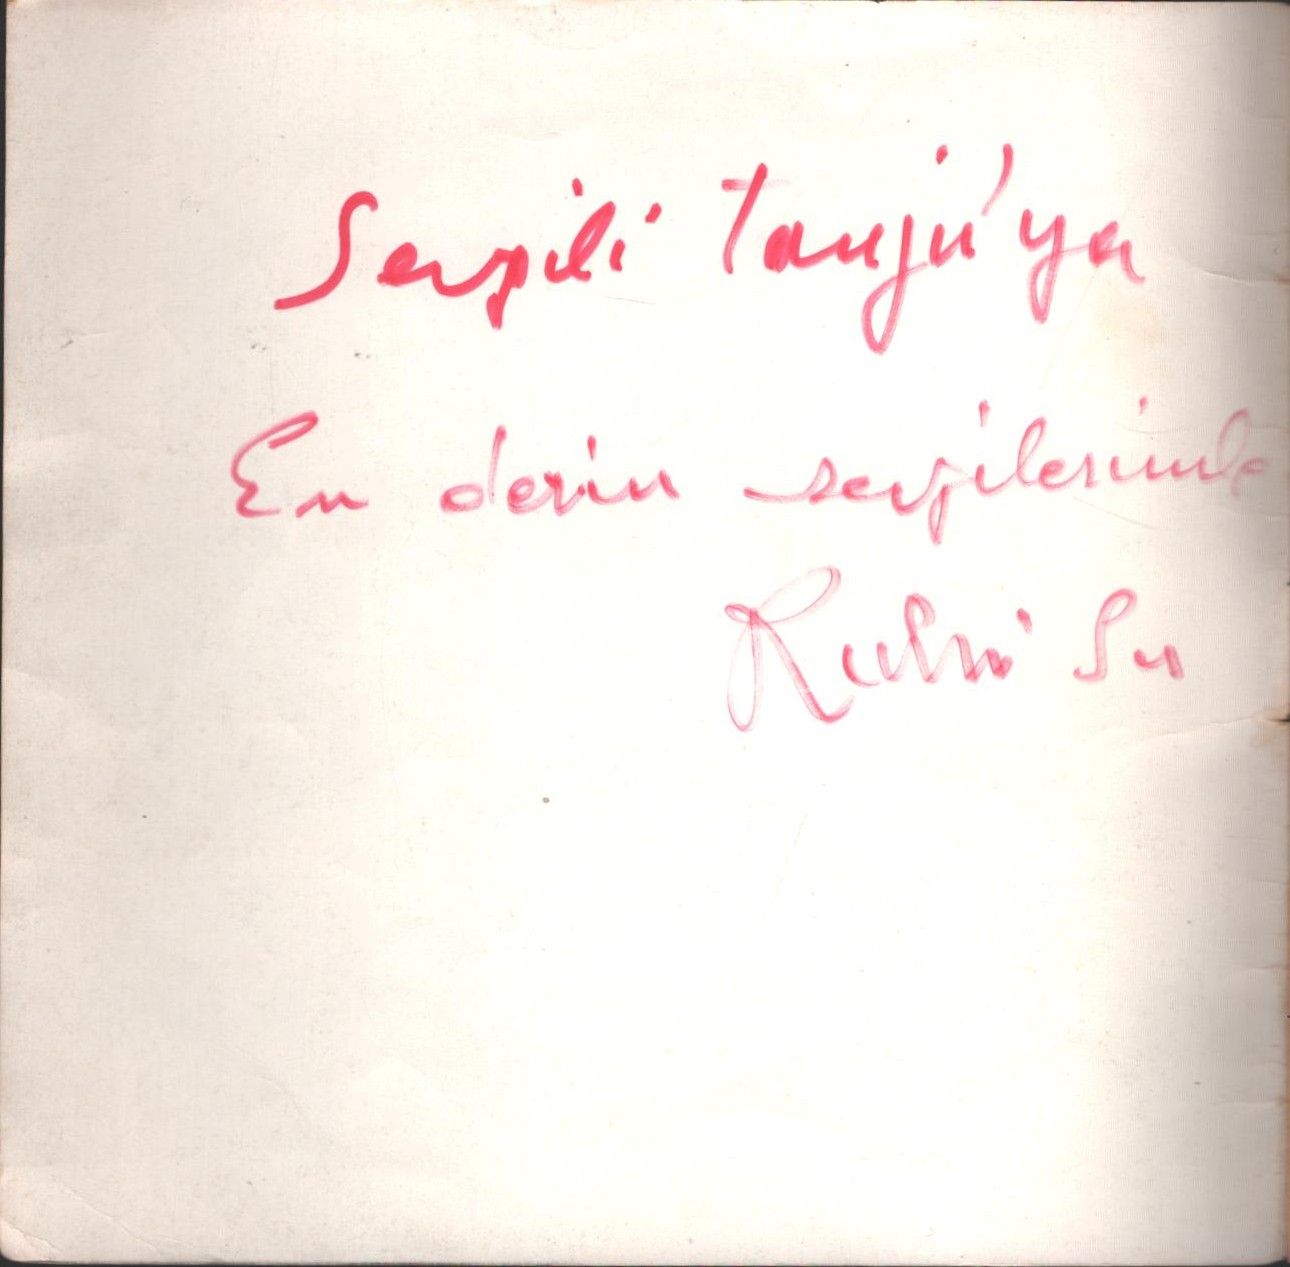 Sevgili Tanju'ya
En derin sevgilerimle
Ruhi Su